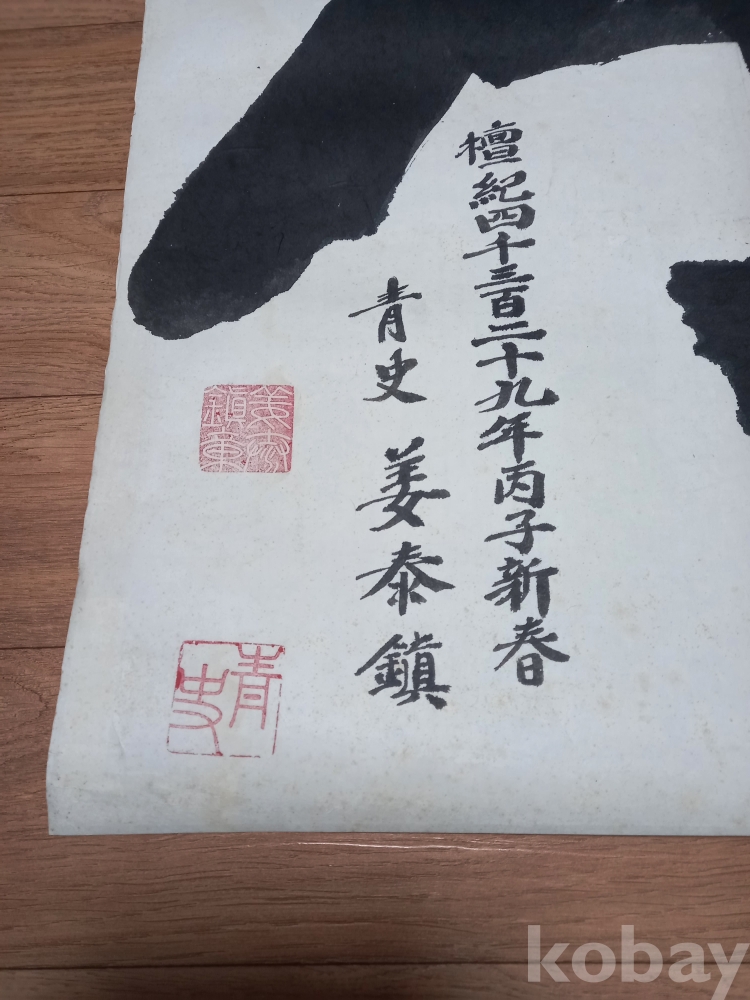 檀紀四千三百二十九年丙子新春
青史 姜泰鎮
姜泰鎮章
青史
kobay